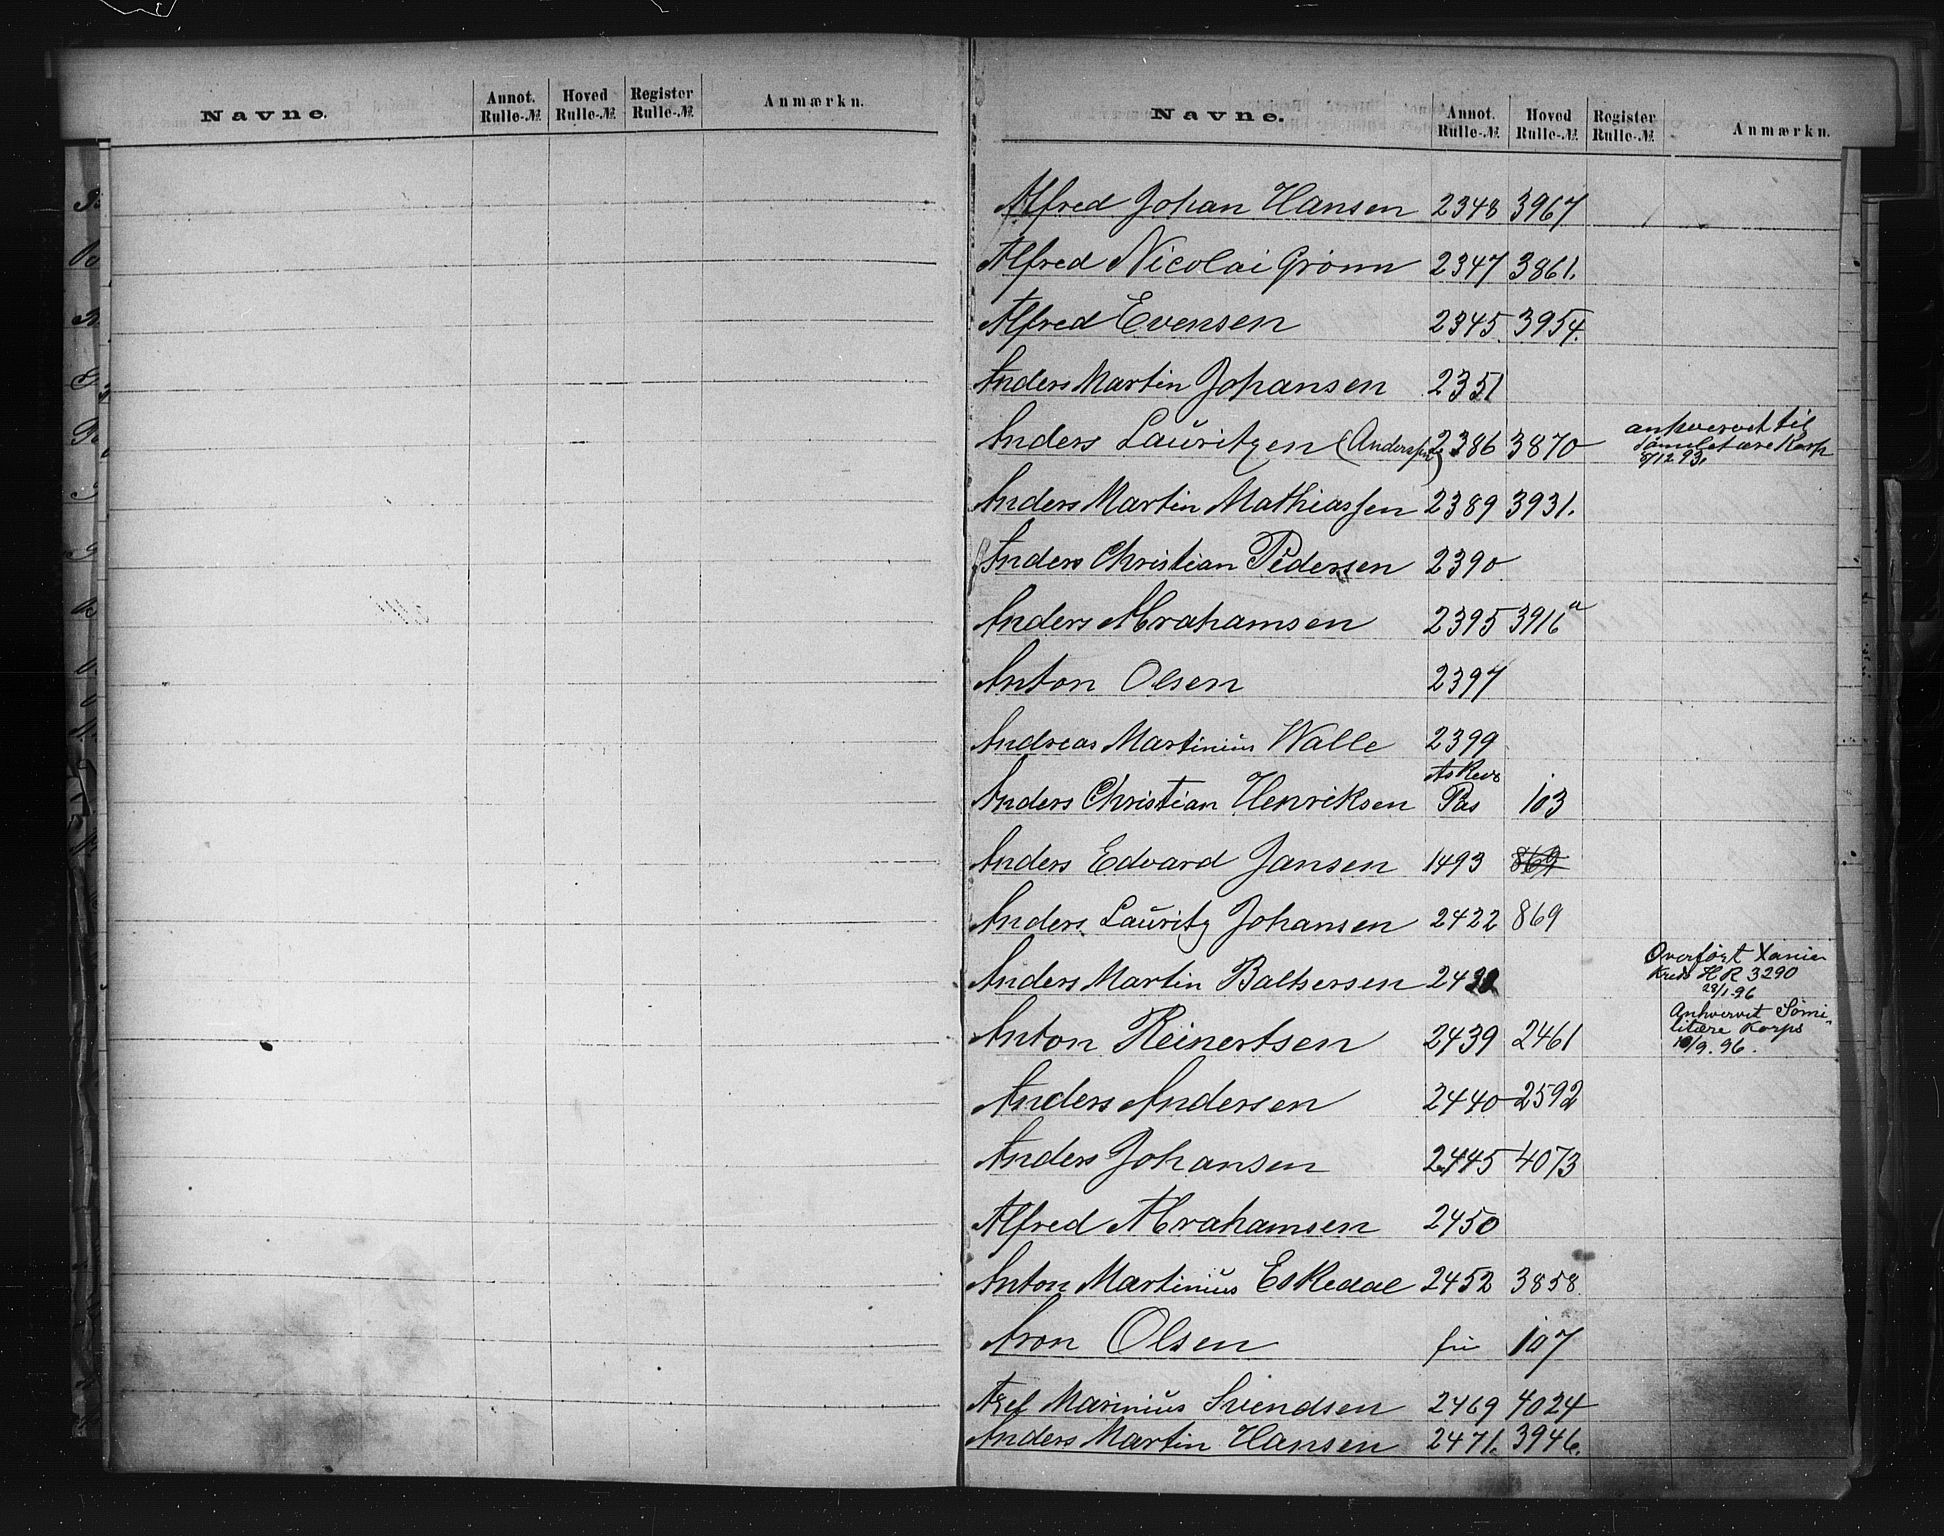 Navne. Annot. Rulle-№ Hoved Rulle-№ Register Rulle-№ Anmærkn.
Navne. Annot. Rulle-№ Hoved Rulle-№ Register Rulle-№ Anmærkn.
Alfred Johan Hansen 2348 3967
Alfred Nicolai Grönn 2347 3861.
Alfred Evensen 2345. 3954.
Anders Martin Johansen 2351
Anders Lauritzen (Anderssen) 2386 3870 anhvervet til
Sömilitære Korp
8/12 93.
Anders Martin Mathiassen 2389 3931.
Anders Christian Pedersen 2390.
Anders Abrahamsen 2395 3916a
Anton Olsen 2397
Andreas Martinius Walle 2399
Anders Christian Henriksen Pas 103
Anders Edvard Jansen 1493 869
Anders Lauritz Johansen 2422 869
Anders Martin Baltsersen Overfört Xania
Kreds H R 3290
28/1 96
Anton Reinertsen 2439 2461 Anhvervet Sömi-
litære Korps
10/9. 96.
Anders Andersen 2440 2592
Anders Johansen 2445 4073
Alfred Abrahamsen 2450
Anton Martinius Eskedal 2452 3858.
Aron Olsen fri 107
Axel Marinius Svendsen 2469 4024
Anders Martin Hansen 2471. 3946.